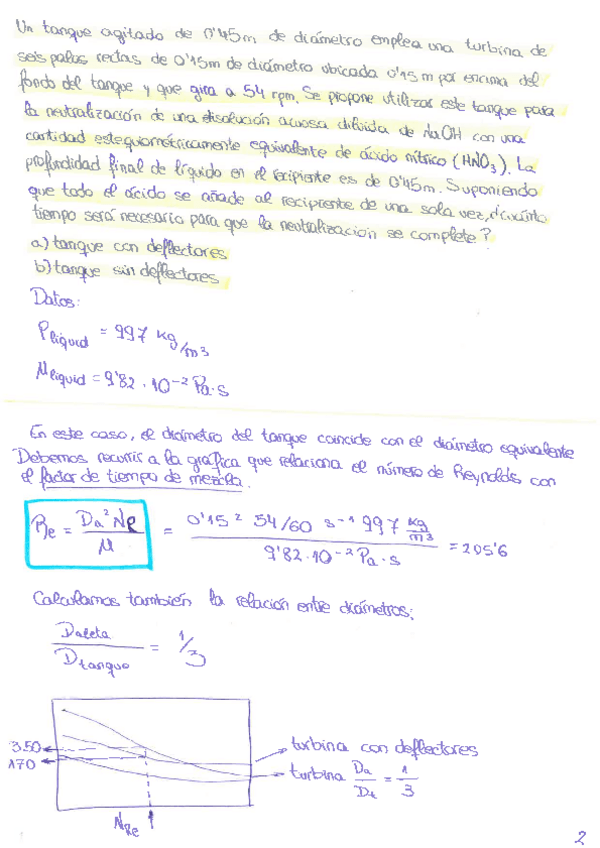 Un tanque agitado de 0'45m de diámetro emplea una turbina de
seis palas rectas de 0'15m de diámetro ubicada 0'15m por encima del
fondo del tanque y que gira a 54 rpm. Se propone utilizar este tanque para
la neutralización de una disolución acuosa diluida de NaOH con una
cantidad estequiométricamente equivalente de ácido nítrico (HNO3). La
profundidad final de líquido en el recipiente es de 0'45m. Suponiendo
que todo el ácido se añade al recipiente de una sola vez, ¿cuánto
tiempo será necesario para que la neutralización se complete?
a) tanque con deflectores
b) tanque sin deflectores
Datos:
ρliquid = 997 kg/m3
μliquid = 9'82 · 10-2 Pa·s
En este caso, el diámetro del tanque coincide con el diámetro equivalente
Debemos recurrir a la gráfica que relaciona el número de Reynolds con
el factor de tiempo de mezcla.
Re = Da2 Nρ / μ = 0'15 2 54/60 s-1 997 kg/m3 / 9'82·10-2 Pa·s = 205'6
Calculamos también la relación entre diámetros:
Daleta / Dtanque = 1/3
350
turbina con deflectores
170
turbina Da/Dt = 1/3
NRe
2